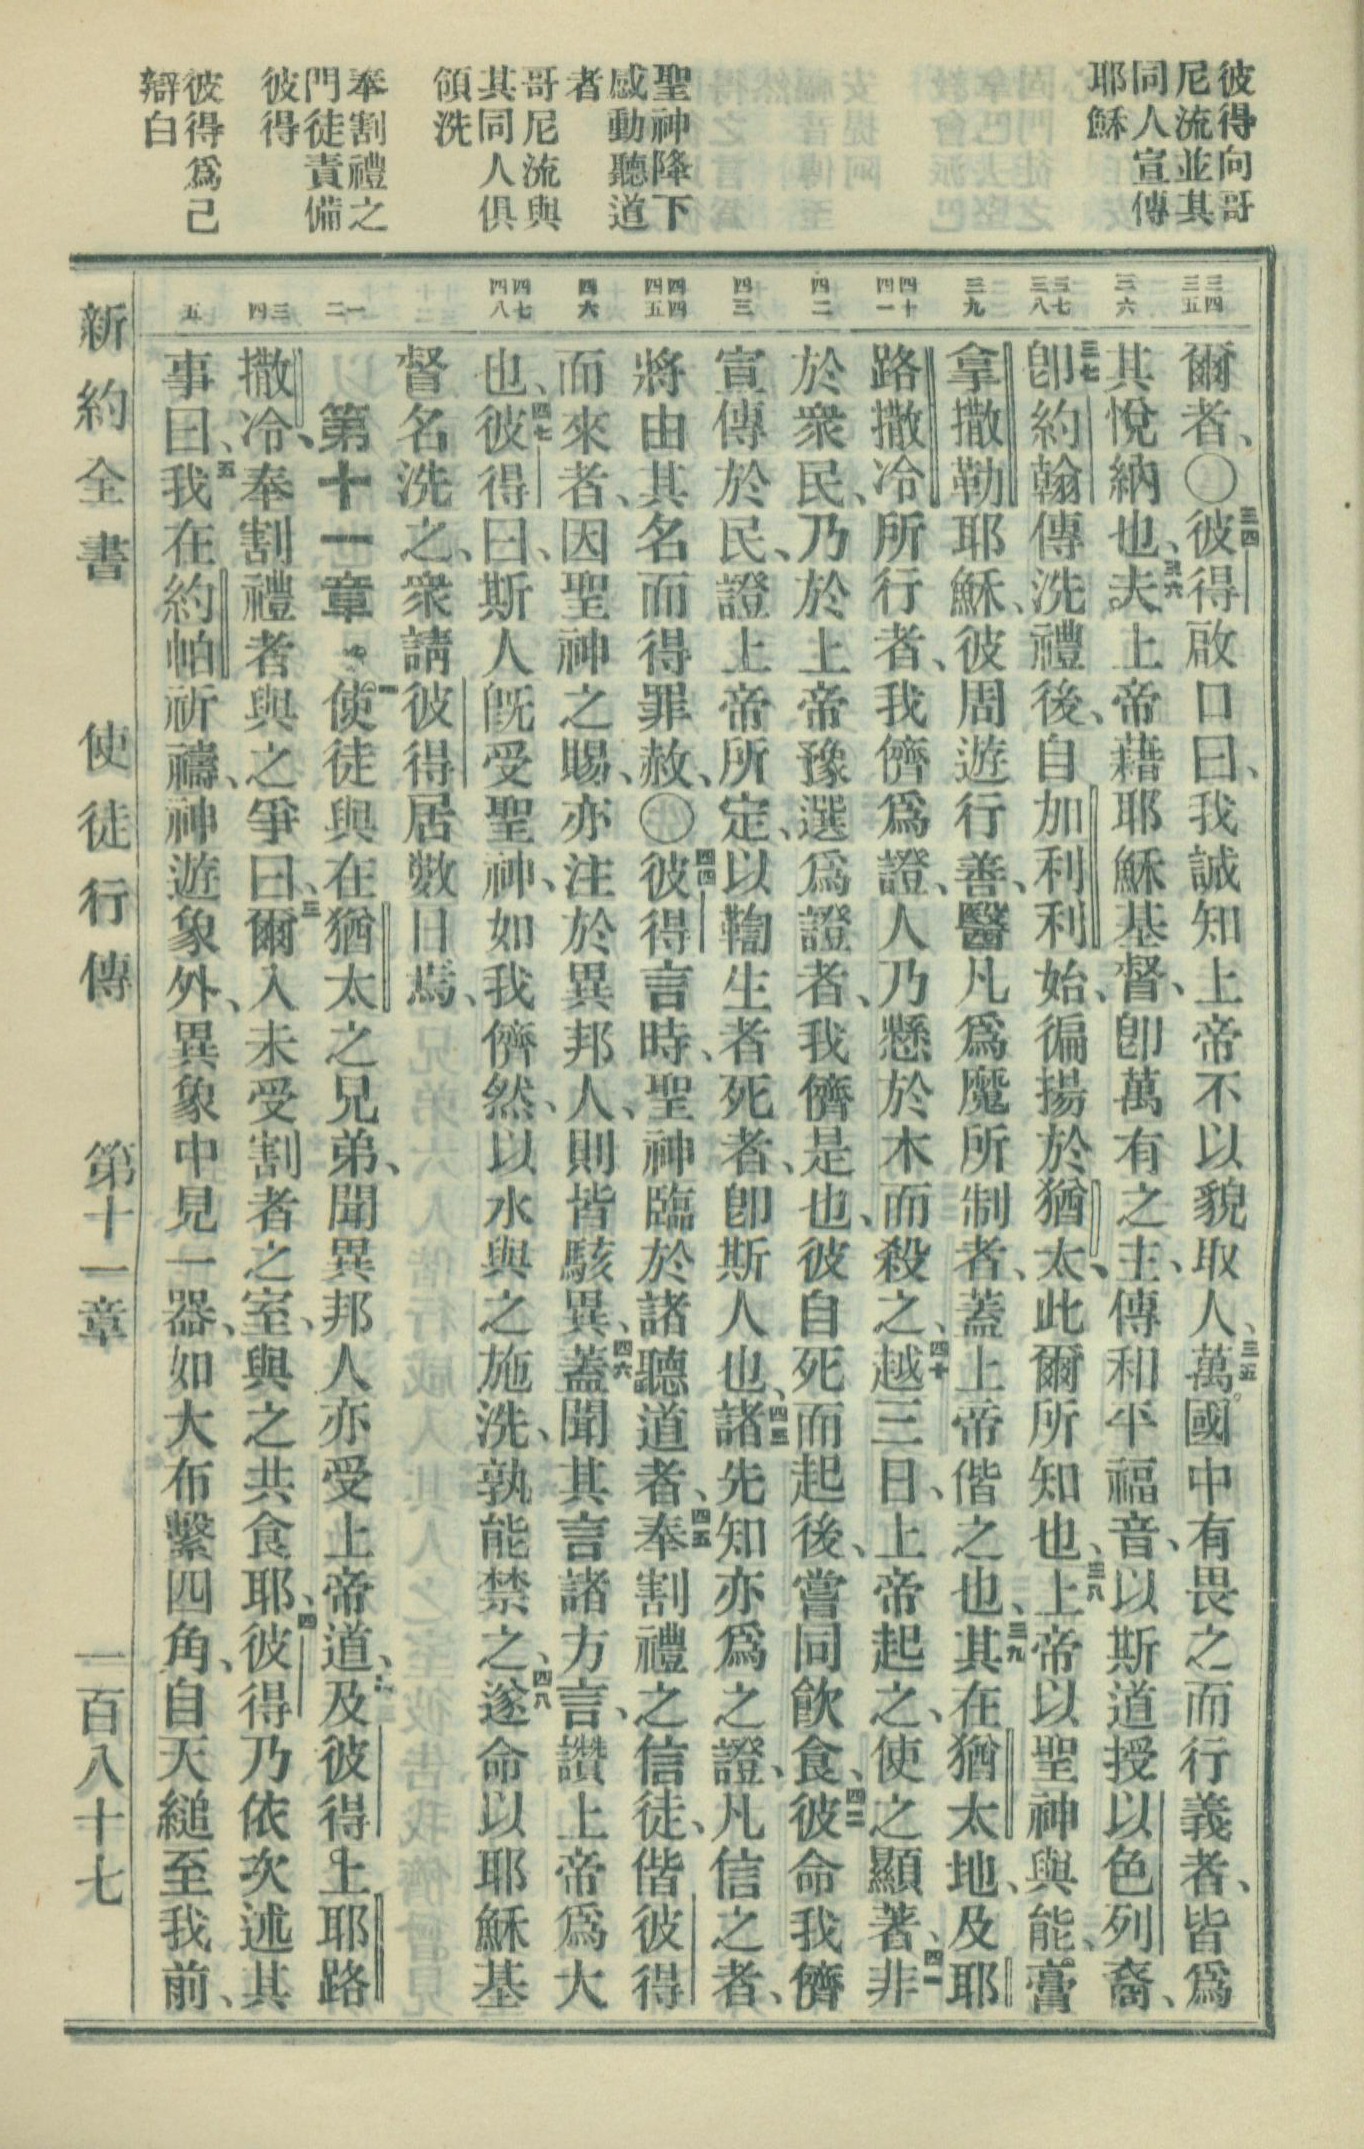 彼得向哥
尼流並其
同人宣傳
耶穌
聖神降下
感動聽道
者
哥尼流與
其同人俱
領洗
奉割禮之
門徒責備
彼得
彼得爲己
辯白
三四 三五
三六
三七 三八
三九
四十 四一
四二
四三
四四 四五
四六
四七 四八
一 二
三 四
五
爾者、〇三四彼得啟口曰、我誠知上帝不以貌取人、三五萬國中有畏之而行義者、皆爲
其悅納也、三六夫上帝藉耶穌基督、卽萬有之主、傳和平福音、以斯道授以色列裔、
三七卽約翰傳洗禮後、自加利利始、徧揚於猶太、此爾所知也、三八上帝以聖神與能、膏
拿撒勒耶穌、彼周遊行善、醫凡爲魔所制者、蓋上帝偕之也、三九其在猶太地、及耶
路撒冷所行者、我儕爲證、人乃懸於木而殺之、四十越三日、上帝起之、使之顯著、四一非
於衆民、乃於上帝豫選爲證者、我儕是也、彼自死而起後、嘗同飮食、四二彼命我儕
宣傳於民、證上帝所定、以鞫生者死者、卽斯人也、四三諸先知亦爲之證、凡信之者、
將由其名而得罪赦、〇四四彼得言時、聖神臨於諸聽道者、四五奉割禮之信徒、偕彼得
而來者、因聖神之賜、亦注於異邦人、則皆駭異、四六蓋聞其言諸方言、讚上帝爲大
也、四七彼得曰、斯人旣受聖神、如我儕然、以水與之施洗、孰能禁之、四八遂命以耶穌基
督名洗之、衆請彼得居數日焉、
第十一章。一使徒與在猶太之兄弟、聞異邦人亦受上帝道、二及彼得上耶路
撒冷、奉割禮者與之爭曰、三爾入未受割者之室、與之共食耶、四彼得乃依次述其
事曰、五我在約帕祈禱、神遊象外、異象中見一器、如大布繫四角、自天縋至我前、
新約全書 使徒行傳 第十一章 一百八十七